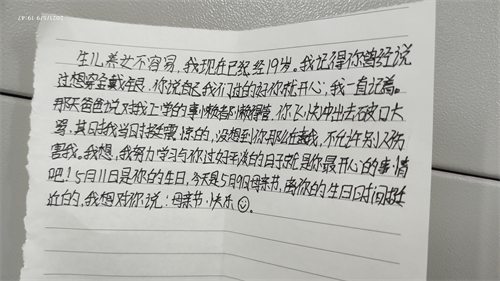 2021/5/9 19:47
生儿养女不容易,我现在已经19岁。我记得你曾经说
过想穿金戴银,你说当我们过的好你就开心,我一直记着。
那天爸爸说对我上学的事懒都懒得管,你飞快冲出去破口大
骂,其实我当时挺震惊的,没想到你那么在意我,不允许别人伤
害我。我想,我努力学习与你过好平淡的日子就是你最开心的事情
吧!5月11日是你的生日,今天是5月9日母亲节,离你的生日时间挺
近的,我想对你说:母亲节快乐☺。